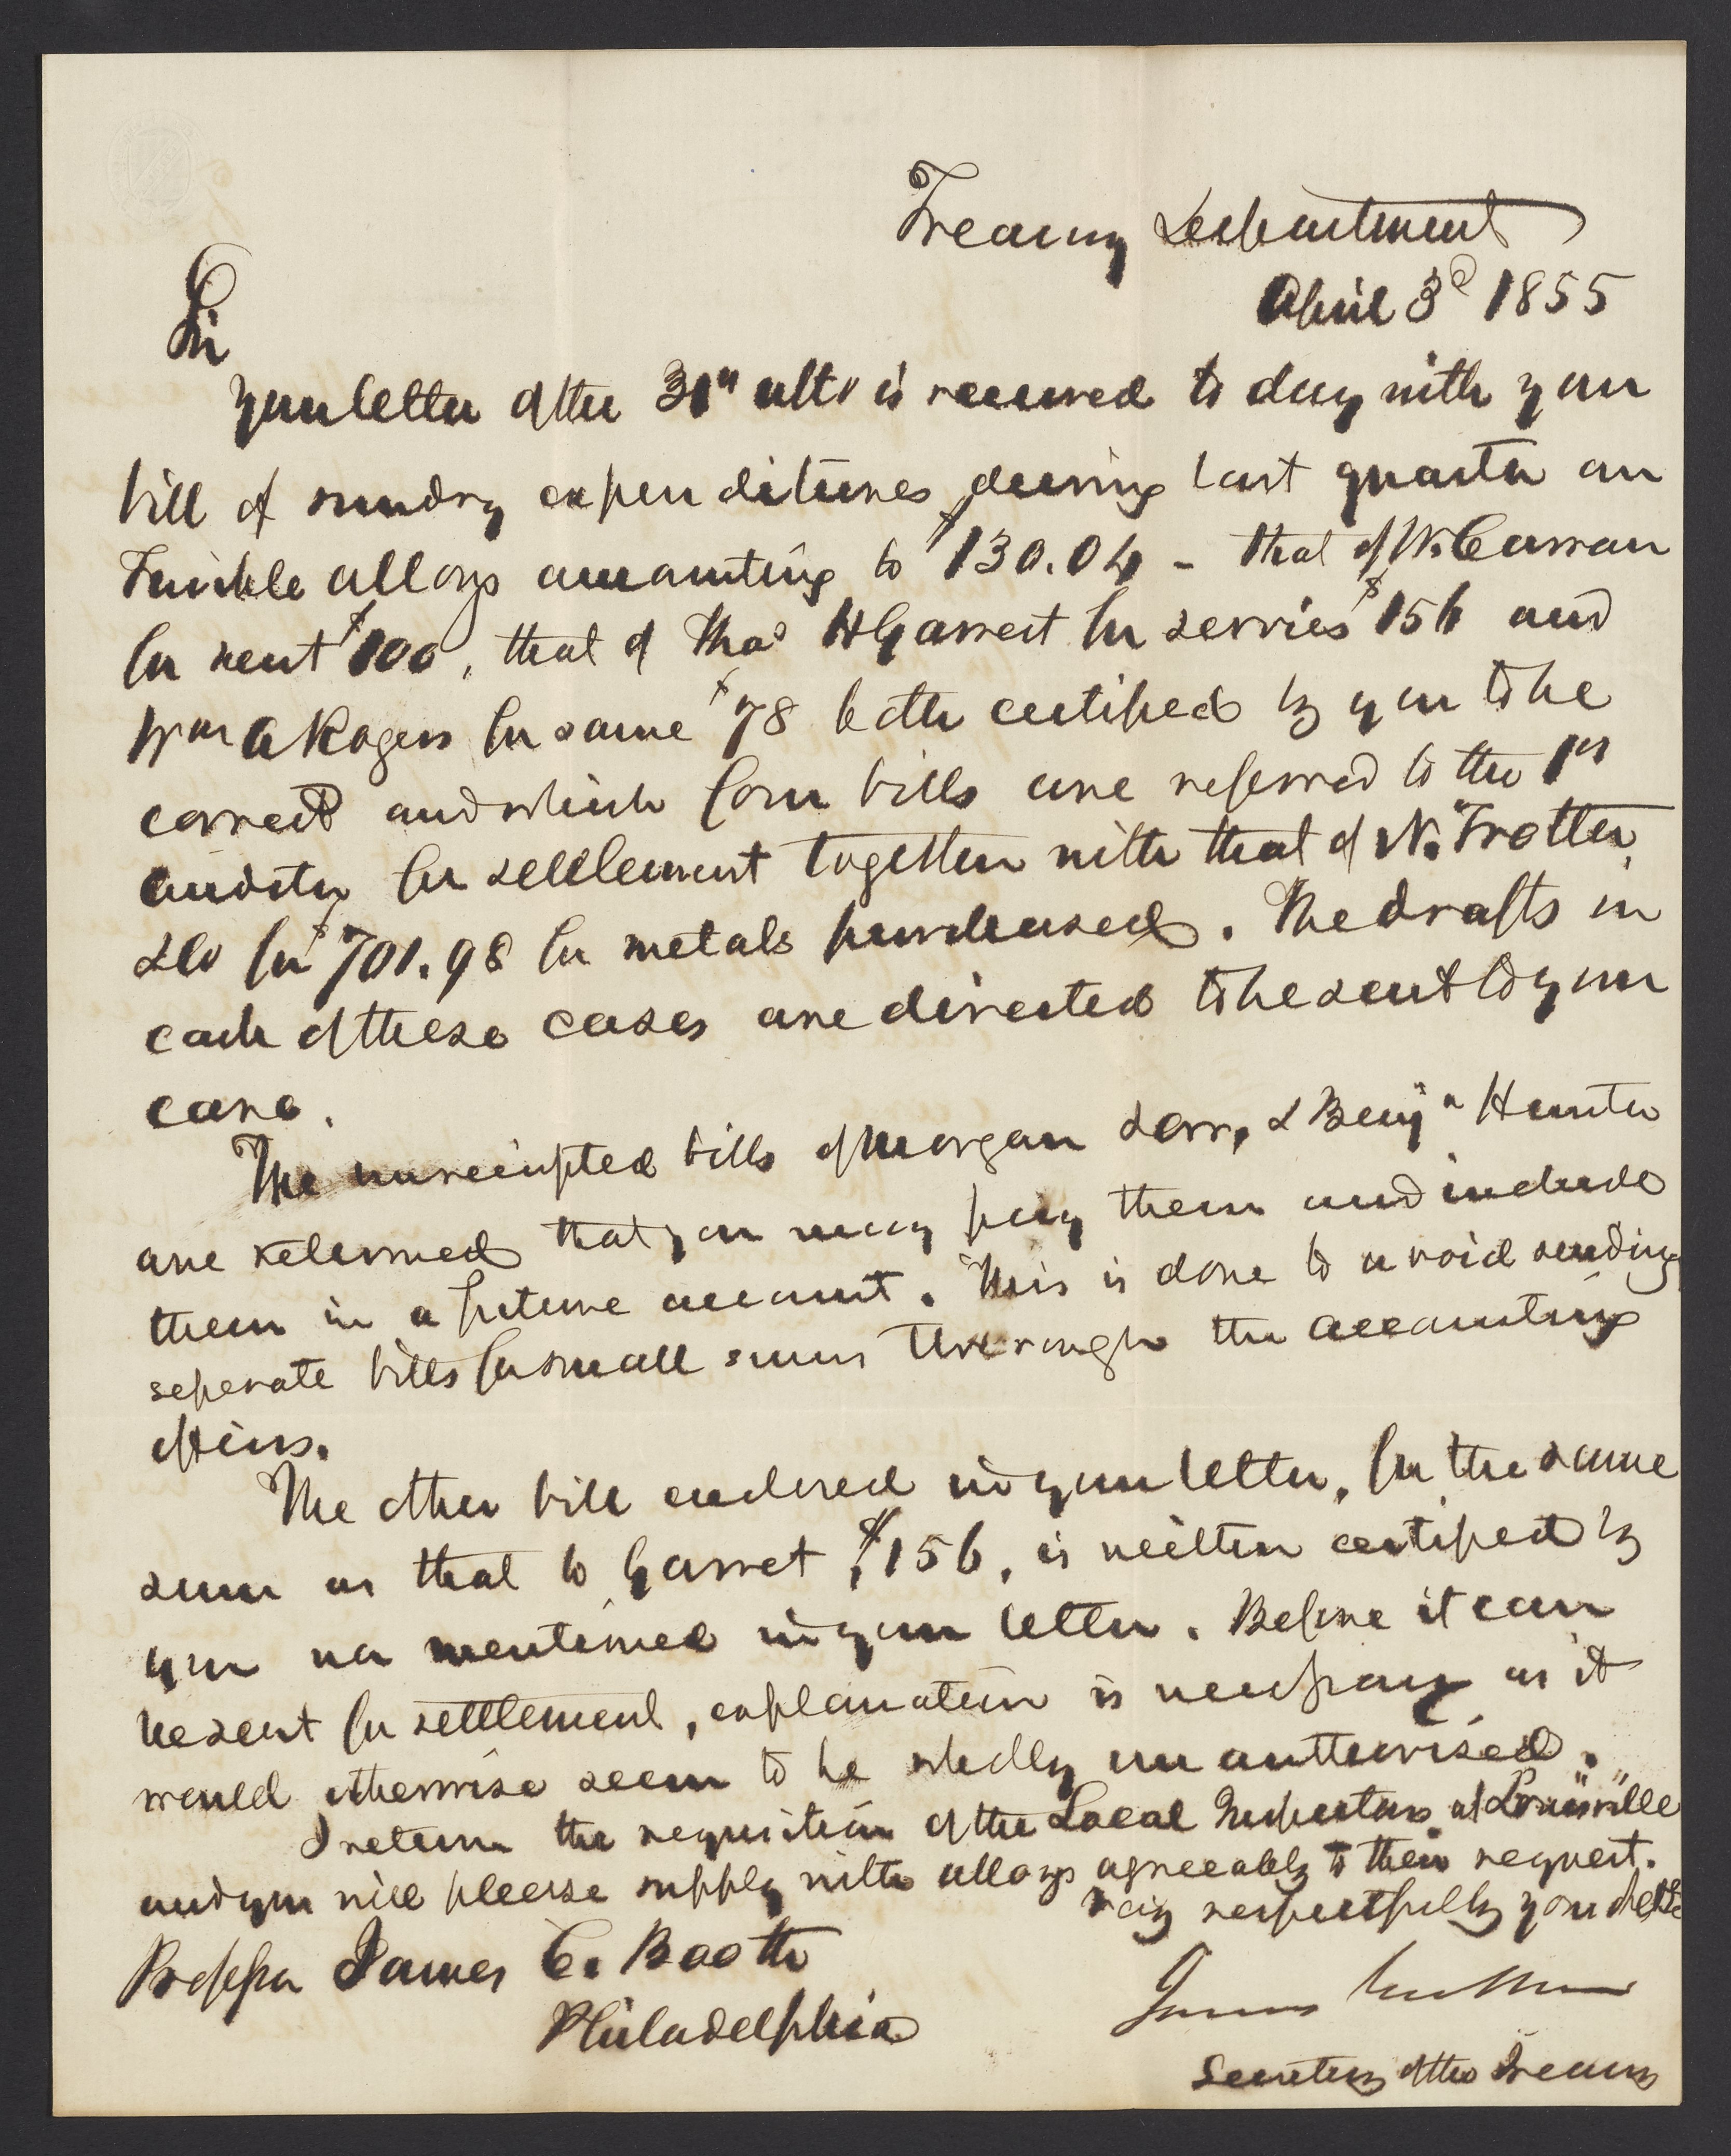 Treasury Department
April 3d 1855
Sir
Your letter of the 31st ulto is received to day with your
bill of sundry expenditures during last quarter on
Fusible alloys amounting to $130.04 - that of W. Curran
for rent $100, that of Thos H Garrest for services $156 and
Wm A Rogers for same $78 both certified by you to be
correct and which four bills are referred to the 1st
auditor for settlement together with that of N. Trotter
& Co for $701.98 for metals purchased. The drafts in
each of these cases are directed to be sent to your
care.
The unreceipted bills of Morgan & Orr, & Benjn Hunter
are returned that you may pay them and include
them in a future account. This is done to avoid sending
seperate bills for small sums through the accounting
offices.
The other bill enclosed in your letter, for the same
sum as that to Garret, $156, is neither certified by
you nor mentioned in your letter. Before it can
be sent for settlement, explanation is necessary as it
would otherwise seem to be wholly unauthorised.
I return the requisition of the Local Inspectors at Louisville
and you will please supply with alloys agreeably to their request.
Very respectfully your obt St
Professor James C. Booth
James Guthrie
Philadelphia
Secretary of the Treasury